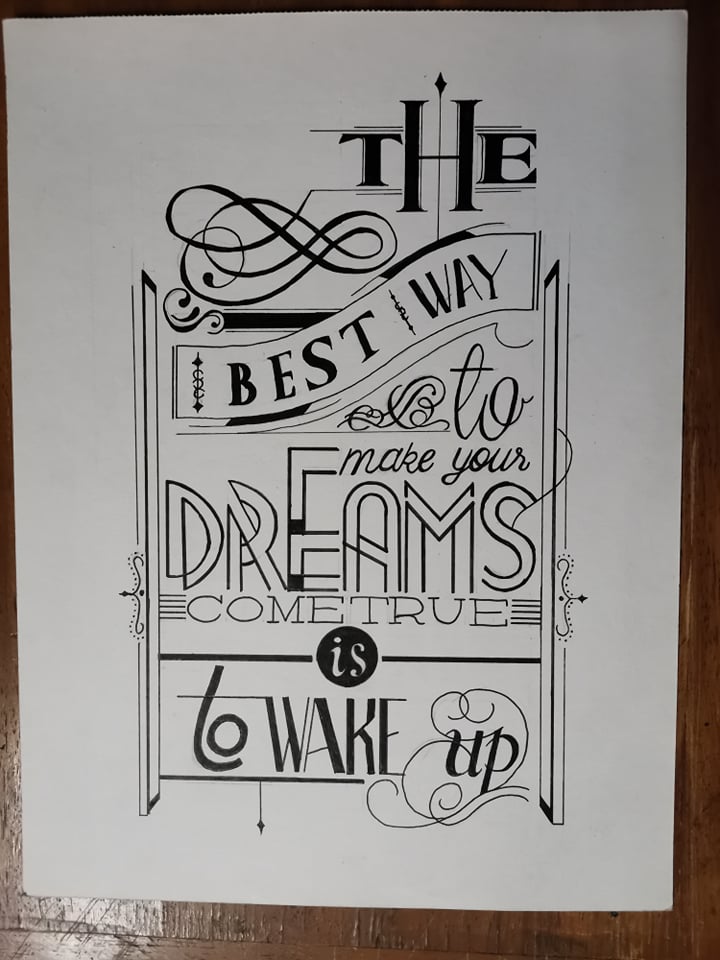 THE
BEST WAY
to
make your
DREAMS
COME TRUE
is
to WAKE up